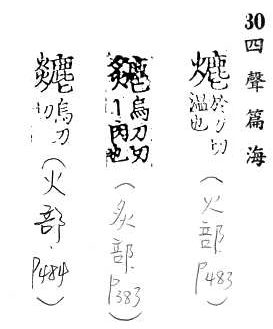 30 四聲篇海
熝 於刀切
溫也
(火部.P483)
烏刀切
肉也
(炙部.P383)
烏刀切
(火部.P484)